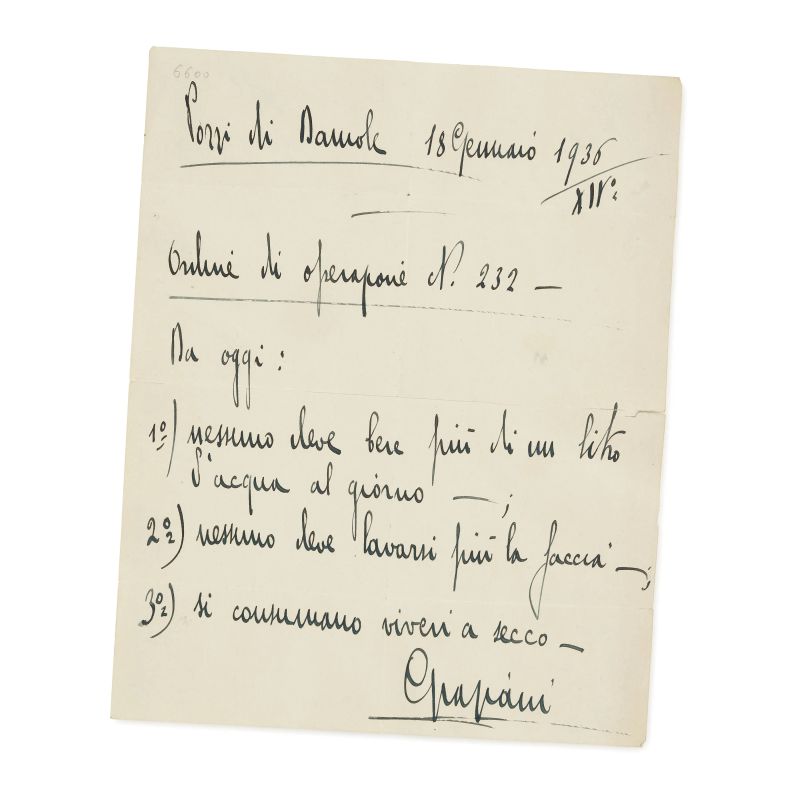 6600
Pozzi di Bamole 18 Gennaio 1936
XIVº
Ordine di operazione N. 232 —
Da oggi :
1º) nessuno deve bere più di un litro
d'acqua al giorno — ;
2º) nessuno deve lavarsi più la faccia — ;
3º) si consumano viveri a secco —
Graziani